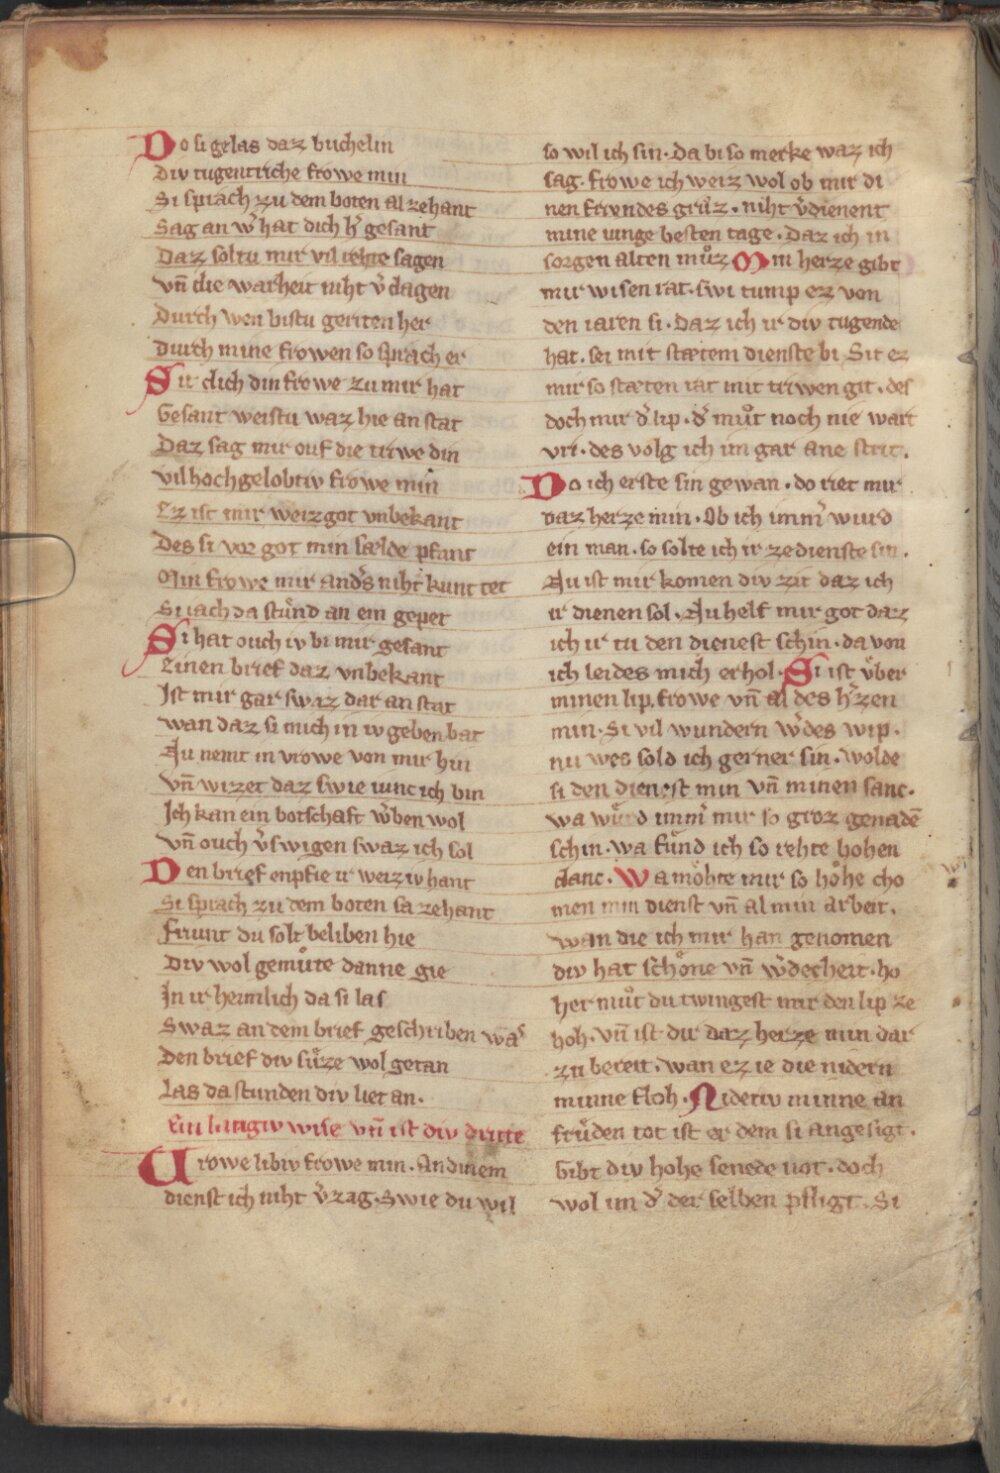 Do si gelas daz buchelin
Div tugentriche frowe min
Si sprach zu dem boten al zehant
Sag an w̾ hat dich h̾ gesant
Daz soltu mir vil rehte sagen
vn̄ die warheit niht v̾dagen
Durch wen bistu geriten her
Durch mine frowen so sprach er
Sit dich din frowe zu mir hat
Gesant weistu waz hie an stat
Daz sag mir ouf die triwe din
vil hochgelobtiv frowe min
Ez ist mir weizgot vnbekant
Des si vor got min sælde pfant
Min frowe mir and̾s niht kunt tet
Si iach da stuͦnd an ein gepet
Si hat ouch iv bi mir gesant
Einen brief daz vnbekant
Ist mir gar swaz dar an stat
wan daz si mich in iv geben bat
Nu nemt in vrowe von mir hin
Vn̄ wizet daz swie iunc ich bin
Ich kan ein botschaft w̾ben wol
vn̄ ouch v̾swigen swaz ich sol
Den brief enpfie ir weiziv hant
Si sprach zu dem boten sa zehant
friunt du solt beliben hie
Div wol gemuͦte danne gie
In ir heimlich da si las
Swaz an dem brief geschriben was
Den brief div suͤze wol getan
Las da stunden div liet an.
Ein langiv wise vn̄ ist div dritte
Vrowe libiv frowe min. An dinem
dienst ich niht v̾zag. Swie du wil
so wil ich sin. da bi so merke waz ich
sag. frowe ich weiz wol ob mir di
nen frendes gruͦz. niht v̾dienent
mine iunge besten tage. Daz ich in
sorgen alten muͦz Min herze gibt
mir wisen rat. swi tump ez von
den iaren si. Daz ich ir div tugende
hat. sei mit stætem dienste bi. Sit ez
mir so stæten rat mit triwen git. des
doch mir d̾ lip. d̾ muͦt noch nie wart
vri. des volg ich im gar ane strit.
Do ich erste sin gewan. do riet mir
daz herze min. Ob ich imm̾ wurd
ein man. so solte ich ir ze dienste sin.
Nu ist mir komen div zit daz ich
ir dienen sol. Nu helf mir got daz
ich ir tu den dienest schin. da von
ich leides mich erhol. Si ist vͤber
minen lip. frowe vn̄ al des h̾zen
min. Si vil wundern w̾des wip.
nu wes sold ich gerner sin. wolde
si den dienest min vn̄ minen sanc.
wa wuͤrd imm̾ mir so groz genadē
schin. wa fuͤnd ich so rehte hohen
danc. Wa moͤhte mir so hoͤhe cho
men min dienst vn̄ al min arbeit.
wan die ich mir han genomen
div hat schoͤne vn̄ w̾decheit. ho
her muͦt du twingest mir den lip ze
hoh. vn̄ ist dir daz herze min dar
zu bereit. wan ez ie die nidern
minne floh. Nideriv minne an
fruͤden tot ist er dem si angesigt.
Gibt div hohe senede not. doch
wol im d̾ der selben pfligt. Si